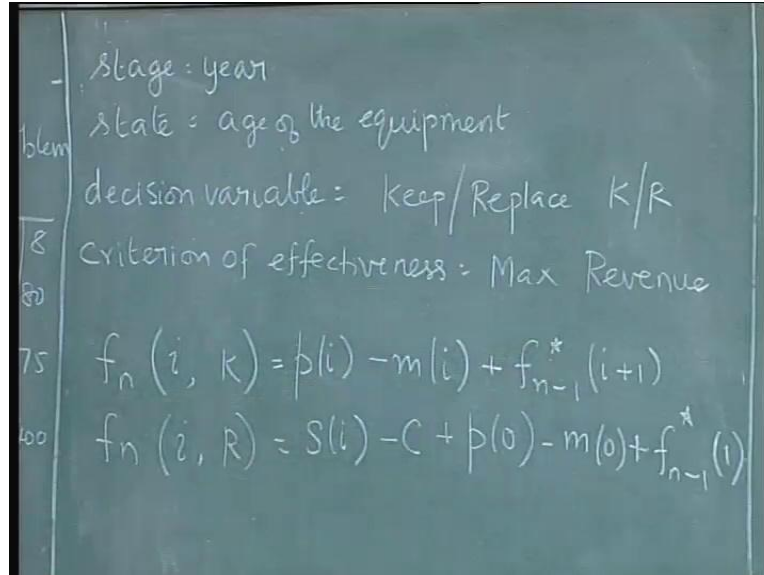 -
stage = year
blem
state = age of the equipment
decision variable = Keep/Replace K/R
8
Criterion of effectiveness = Max Revenue
80
75
f_n (i, K) = p(i) - m(i) + f*_{n-1} (i+1)
400
f_n (i, R) = S(i) - C + p(0) - m(0) + f*_{n-1} (1)